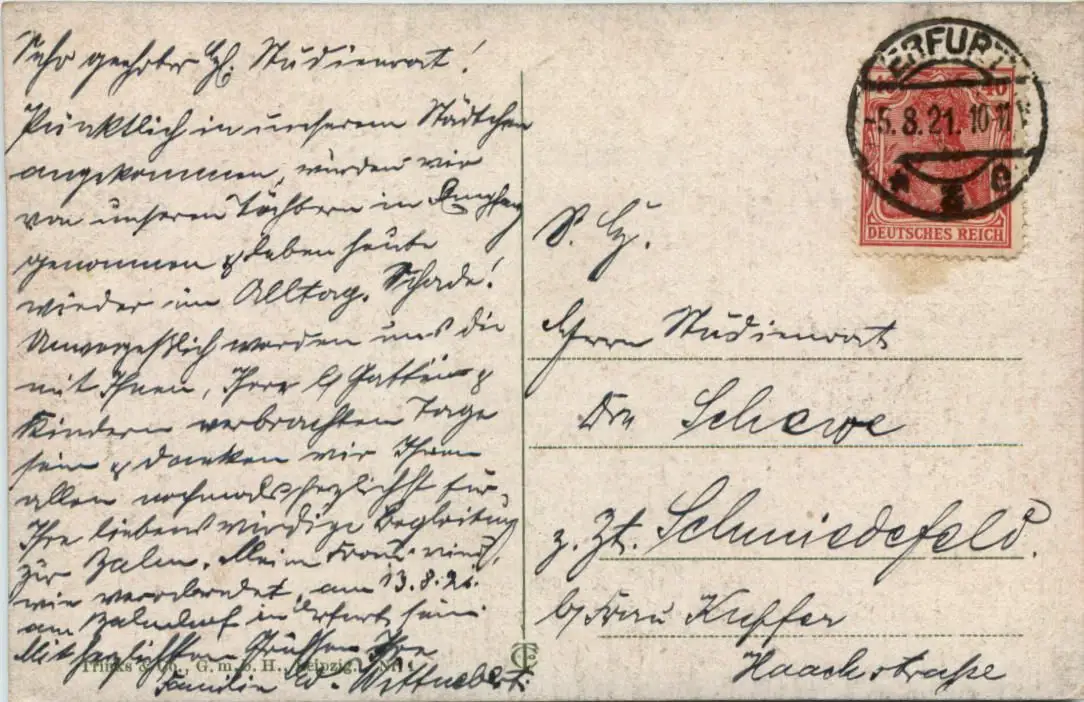 Sehr geehrter H. Studienrat!
Pünktlich in unserem Städtchen
angekommen, wurden wir
von unseren Töchtern in Empfang
genommen & leben heute
wieder im Alltag. Schade!
Unvergeßlich werden uns die
mit Ihnen, Ihrer Gattin &
Kindern verbrachten Tage
sein & danken wir Ihnen
allen nochmals herzlichst für
Ihre liebenswürdige Begleitung
zur Bahn. Meine Frau wird,
wie verabredet, am 13.8.21.
am Bahnhof in Erfurt sein.
Mit herzlichsten Grüßen Ihre
Familie W. Wittnebert.
Trinks & Co., G. m. b. H., Leipzig. Nr. 1
ERFURT
-5.8.21. 10-11
* 2 e
40
DEUTSCHES REICH
S. H.
Herrn Studienrat
Schewe
z. Zt. Schmiedefeld.
b/ Frau Kupfer
Haackstraße